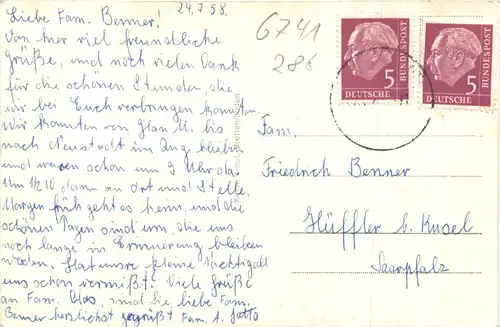 24.7.58.
Liebe Fam. Benner!
Von hier viel freundliche
Grüße, und noch vielen Dank
für die schönen Stunden, die
wir bei Euch verbringen konnten.
Wir konnten von Glan M. bis
nach Neustadt im Zug bleiben
und waren schon um 9 Uhr da.
Um ½10 dann an Ort und Stelle.
Morgen früh geht es heim, und die
schönen Tagen sind um, die uns
noch lange in Erinnerung bleiben
werden. Hat unsre kleine Nachtigall
uns schon vermißt? Viele Grüße
an Fam. sind Sie liebe Fam.
Benner herzlichst gegrüßt Fam. A.
6741
286
5
DEUTSCHE
BUNDESPOST
5
DEUTSCHE
BUNDESPOST
Fam.
Friedrich Benner
Hüffler b. Kusel
Saarpfalz